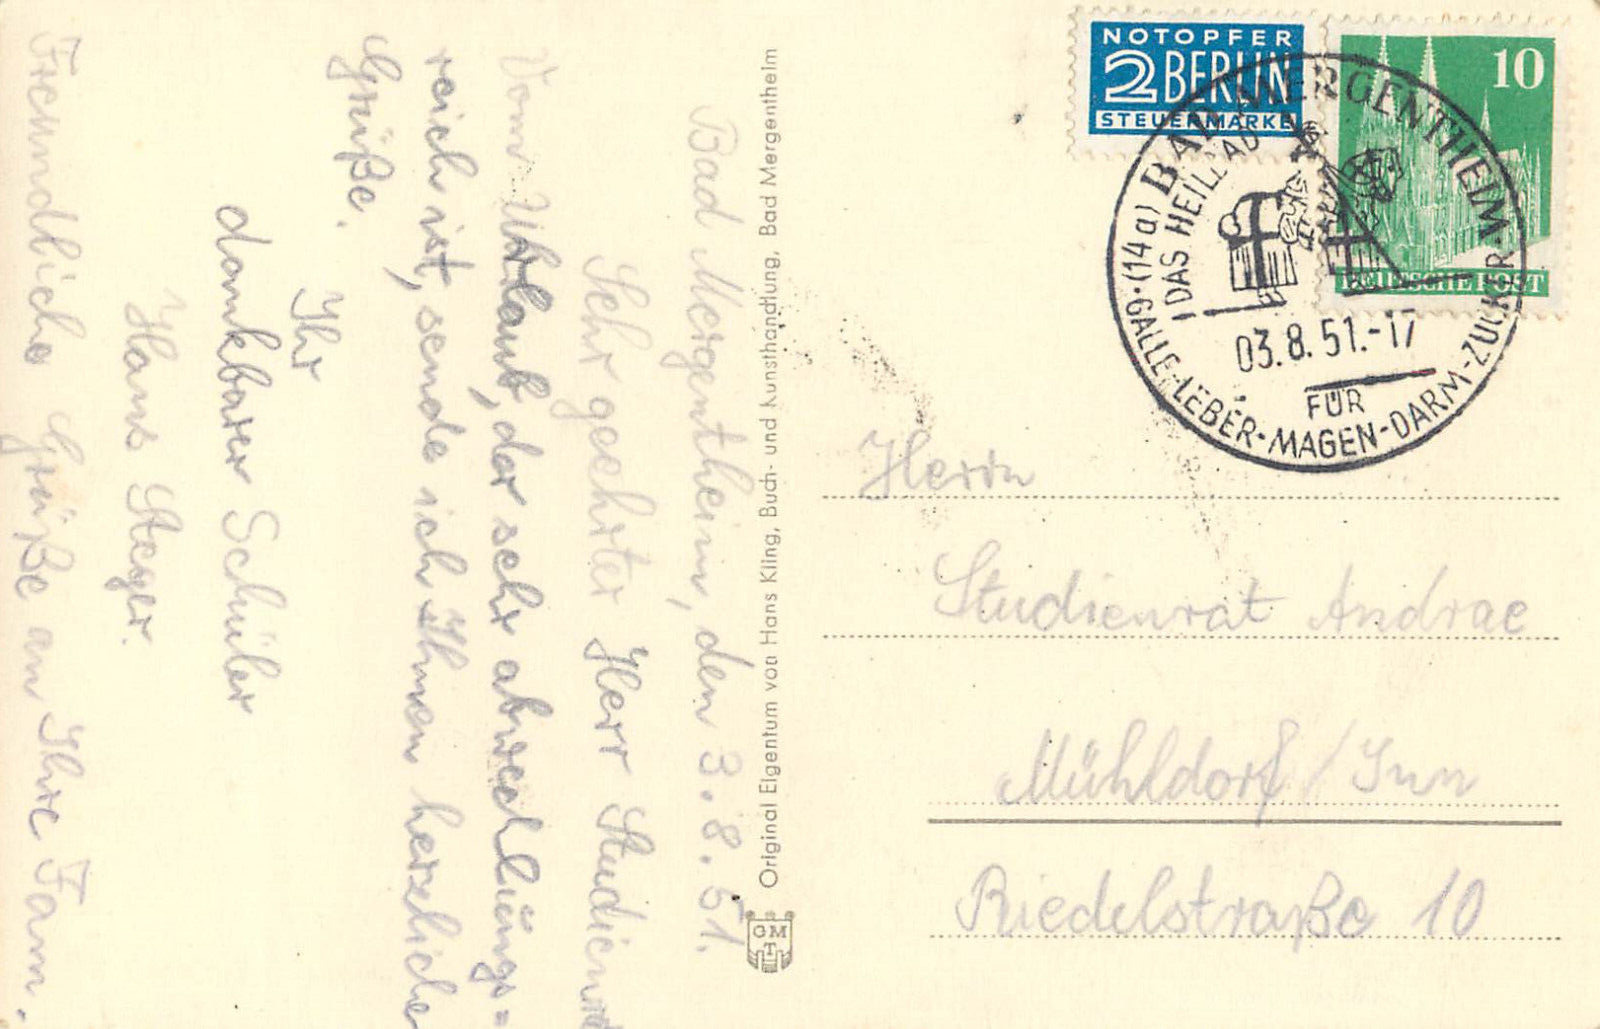 Bad Mergentheim, den 3.8.51.
Sehr geehrter Herr Studienrat
Vom Urlaub, der sehr abwechslungs=
reich ist, sende ich Ihnen herzliche
Grüße.
Ihr
dankbarer Schüler
Hans Steger.
Freundliche Grüße an Ihre Fam.
Original Eigentum von Hans Kling, Buch- und Kunsthandlung, Bad Mergentheim
GMT
NOTOPFER
2 BERLIN
STEUERMARKE
10
DEUTSCHE POST
(14a) BAD MERGENTHEIM
DAS HEILBAD
03.8.51.-17
FÜR
GALLE-LEBER-MAGEN-DARM-ZUCKER
Herrn
Studienrat Andrae
Mühldorf / Inn
Riedelstraße 10